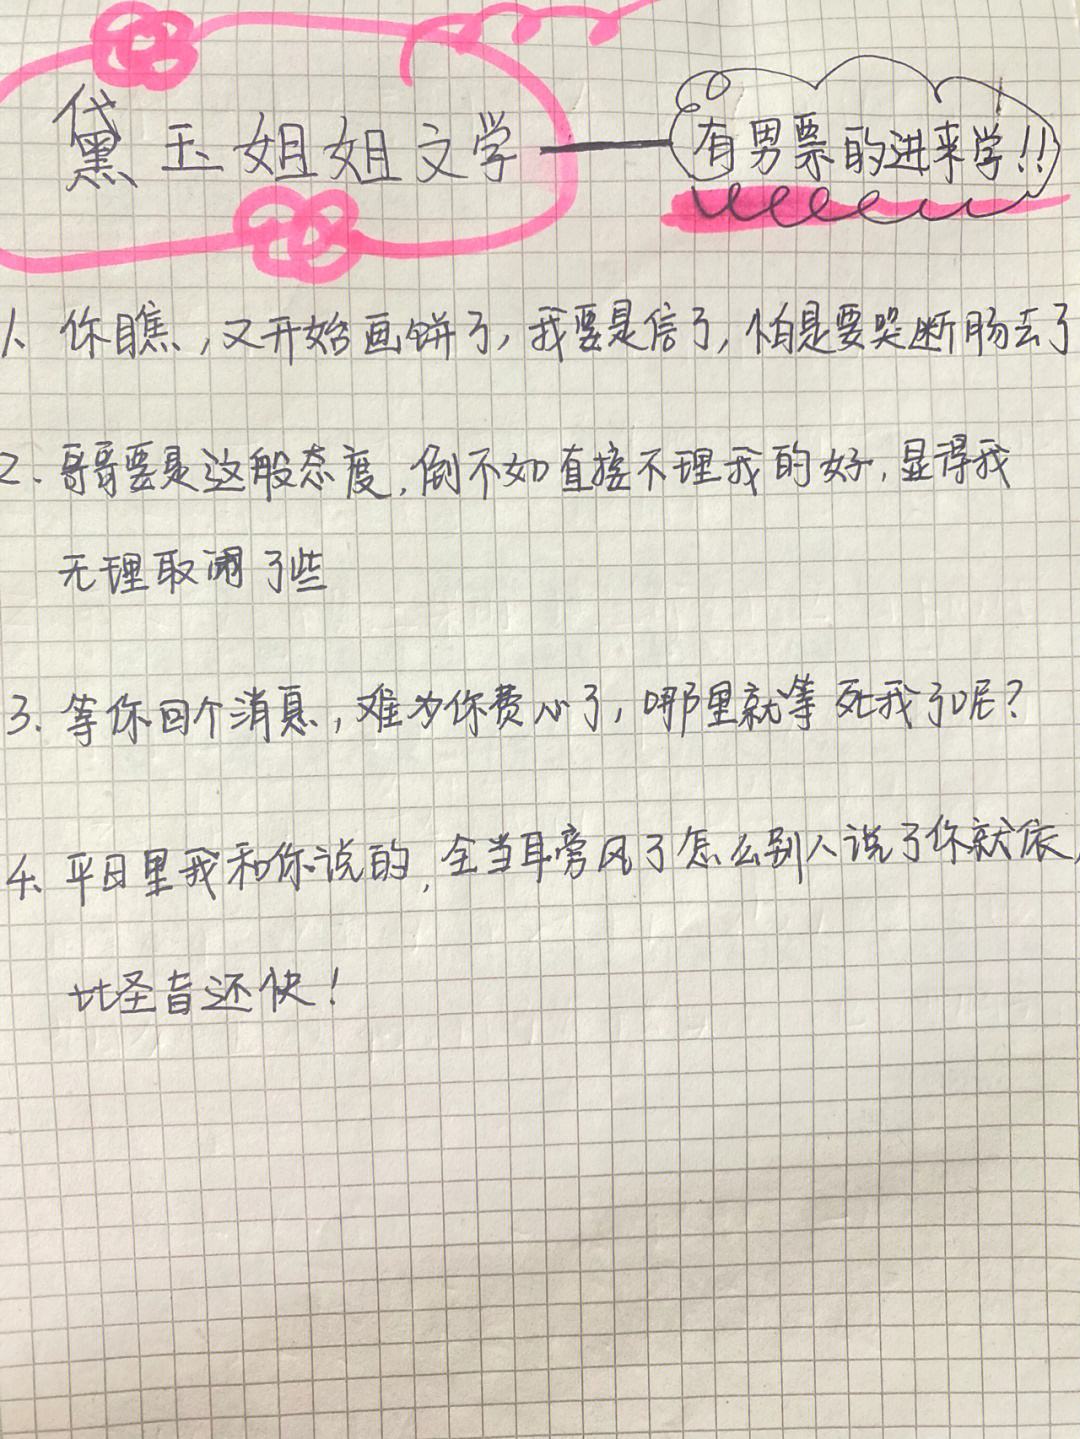 黛玉姐姐文学——有男票的进来学!!
1. 你瞧,又开始画饼了,我要是信了,怕是要哭断肠去了
2. 哥哥要是这般态度,倒不如直接不理我的好,显得我
无理取闹了些
3. 等你回个消息,难为你费心了,哪里就等死我了呢?
4. 平日里我和你说的,全当耳旁风了怎么别人说了你就依,
比圣旨还快!